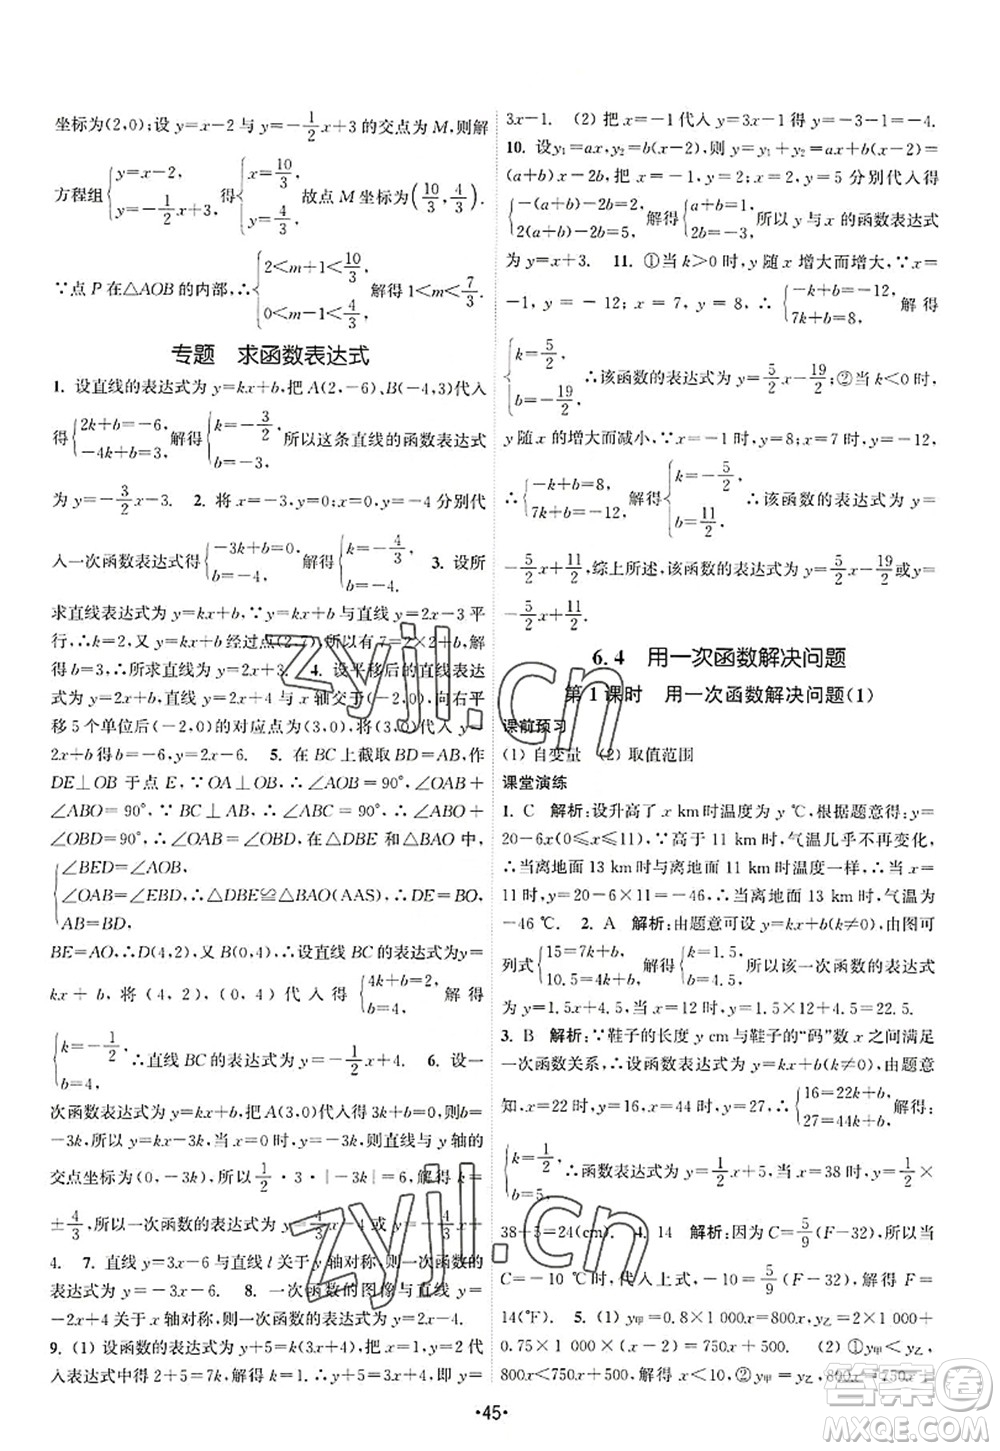 坐标为(2,0);设 y=x-2 与 y=-1/2x+3 的交点为 M,则解
方程组{y=x-2, y=-1/2x+3,得{x=10/3, y=4/3.故点 M 坐标为(10/3,4/3).
∵点 P 在△AOB 的内部,∴{2<m+1<10/3, 0<m-1<4/3,解得 1<m<7/3.
专题 求函数表达式
1. 设直线的表达式为 y=kx+b,把 A(2,-6),B(-4,3)代入
得{2k+b=-6, -4k+b=3,解得{k=-3/2, b=-3.所以这条直线的函数表达式
为 y=-3/2x-3. 2. 将 x=-3,y=0;x=0,y=-4 分别代
入一次函数表达式得{-3k+b=0, b=-4,解得{k=-4/3, b=-4. 3. 设所
求直线表达式为 y=kx+b,∵y=kx+b 与直线 y=2x-3 平
行,∴k=2,又 y=kx+b 经过点(2,7),所以有 7=2×2+b,解
得 b=3,所以所求直线为 y=2x+3. 4. 设平移后的直线表达式
为 y=2x+b,直线 y=2x+4 与 x 轴交于(-2,0),向右平
移 5 个单位后(-2,0)的对应点为(3,0),把(3,0)代入 y=
2x+b 得 b=-6 5. 在 BC 上截取 BD=AB,作
DE⊥OB 于点 E,∵OA⊥OB,∴∠OAB+
∠ABO=90°,∵BC⊥AB,∴∠ABO+
∠OBD=90°,∴∠OAB=∠OBD,在△DBE 和△BAO 中,
{∠BED=∠AOB, ∠OAB=∠EBD, AB=BD,∴△DBE≌△BAO(AAS),∴DE=BO,
BE=AO,∴D(4,2),又 B(0,4),∴设直线 BC 的表达式为 y=
kx+b,将(4,2),(0,4)代入得{4k+b=2, b=4,解得
{k=-1/2, b=4.∴直线 BC 的表达式为 y=-1/2x+4. 6. 设一
次函数表达式为 y=kx+b,把 A(3,0)代入得 3k+b=0,则 b=
-3k,所以 y=kx-3k,当 x=0 时,y=-3k,则直线与 y 轴的
交点坐标为(0,-3k),所以 1/2·3·|-3k|=6,解得 k=
±4/3,所以一次函数的表达式为 y=4/3x-4 或 y=-4/3x+
4. 7. 直线 y=3x-6 与直线 l 关于 y 轴对称,则 y=
-3x-6 8. 一次函数的图像与直线 y=
-2x+4 关于 x 轴对称,所以表达式为 y=2x-4.
9. (1) 设函数的表达式为 y+5=k(3x+4),把 x=1,y=2 代
入函数表达式得 2+5=7k,解得 k=1,∴y+5=3x+4,即 y=
3x-1. (2) 把 x=-1 代入 y=3x-1 得 y=-3-1=-4.
10. 设y₁=ax,y₂=b(x-2),则 y=y₁+y₂=ax+b(x-2)=
(a+b)x-2b,把 x=-1,y=2;x=2,y=5 分别代入得
{-(a+b)-2b=2, 2(a+b)-2b=5,解得{a=2, b=-1.所以 y 与 x 的函数表达式
为 y=x+3. 11. ①当 k>0 时,y 随 x 增大而增大,∵x=
-1,y=-12;x=7,y=8,∴{-k+b=-12, 7k+b=8,解得
{k=5/2, b=-19/2.∴该函数的表达式为 y=5/2x-19/2;②当 k<0 时,
y 随 x 的增大而减小,∵x=-1 时,y=8;x=7 时,y=-12,
∴{-k+b=8, 7k+b=-12,解得{k=-5/2, b=11/2.∴该函数的表达式为 y=
-5/2x+11/2,综上所述,该函数的表达式为 y=5/2x-19/2或y=
-5/2x+11/2.
6.4 用一次函数解决问题
第 1 课时 用一次函数解决问题(1)
课前预习
(1) 自变量 (2) 取值范围
课堂演练
1. C 解析:设升高了 x km时温度为 y ℃,根据题意得:y=
20-6x(0≤x≤11).∵高于 11 km时,气温几乎不再变化,
∴当离地面 13 km时温度与离地面 11 km时温度一样,∴当 x=
11 时,y=20-6×11=-46,∴当离地面 13 km时,气温为
-46 ℃. 2. A 解析:由题意可设 y=kx+b(k≠0),由图可
列式{15=7k+b, 10.5=4k+b,解得{k=1.5, b=4.5,所以该一次函数的表达式
为 y=1.5x+4.5,当 x=12 时,y=1.5×12+4.5=22.5.
3. B 解析:∵鞋子的长度 y cm与鞋子的“码”数 x 之间满足
一次函数关系,∴设函数表达式为 y=kx+b(k≠0),由题意
知,x=22 时,y=16,x=44 时,y=27,∴{16=22k+b, 27=44k+b,解得:
{k=1/2, b=5,∴函数表达式为 y=1/2x+5,当 x=38 时,y=1/2×
38+5=24(cm). 4. 14 解析:因为 C=5/9(F-32),所以当
C=-10 时,代入上式,-10=5/9(F-32),解得 F=
14(℉). 5. (1) y甲=0.8×1 000x=800x,y乙=2×1 000+
0.75×1 000×(x-2)=750x+500. (2)①y甲<y乙,
800x<750x+500,解得 x<10;②y甲=y乙,800x=750x+
·45·
zyjl.cn
zyjl.cn
答案圈
MXQE.COM